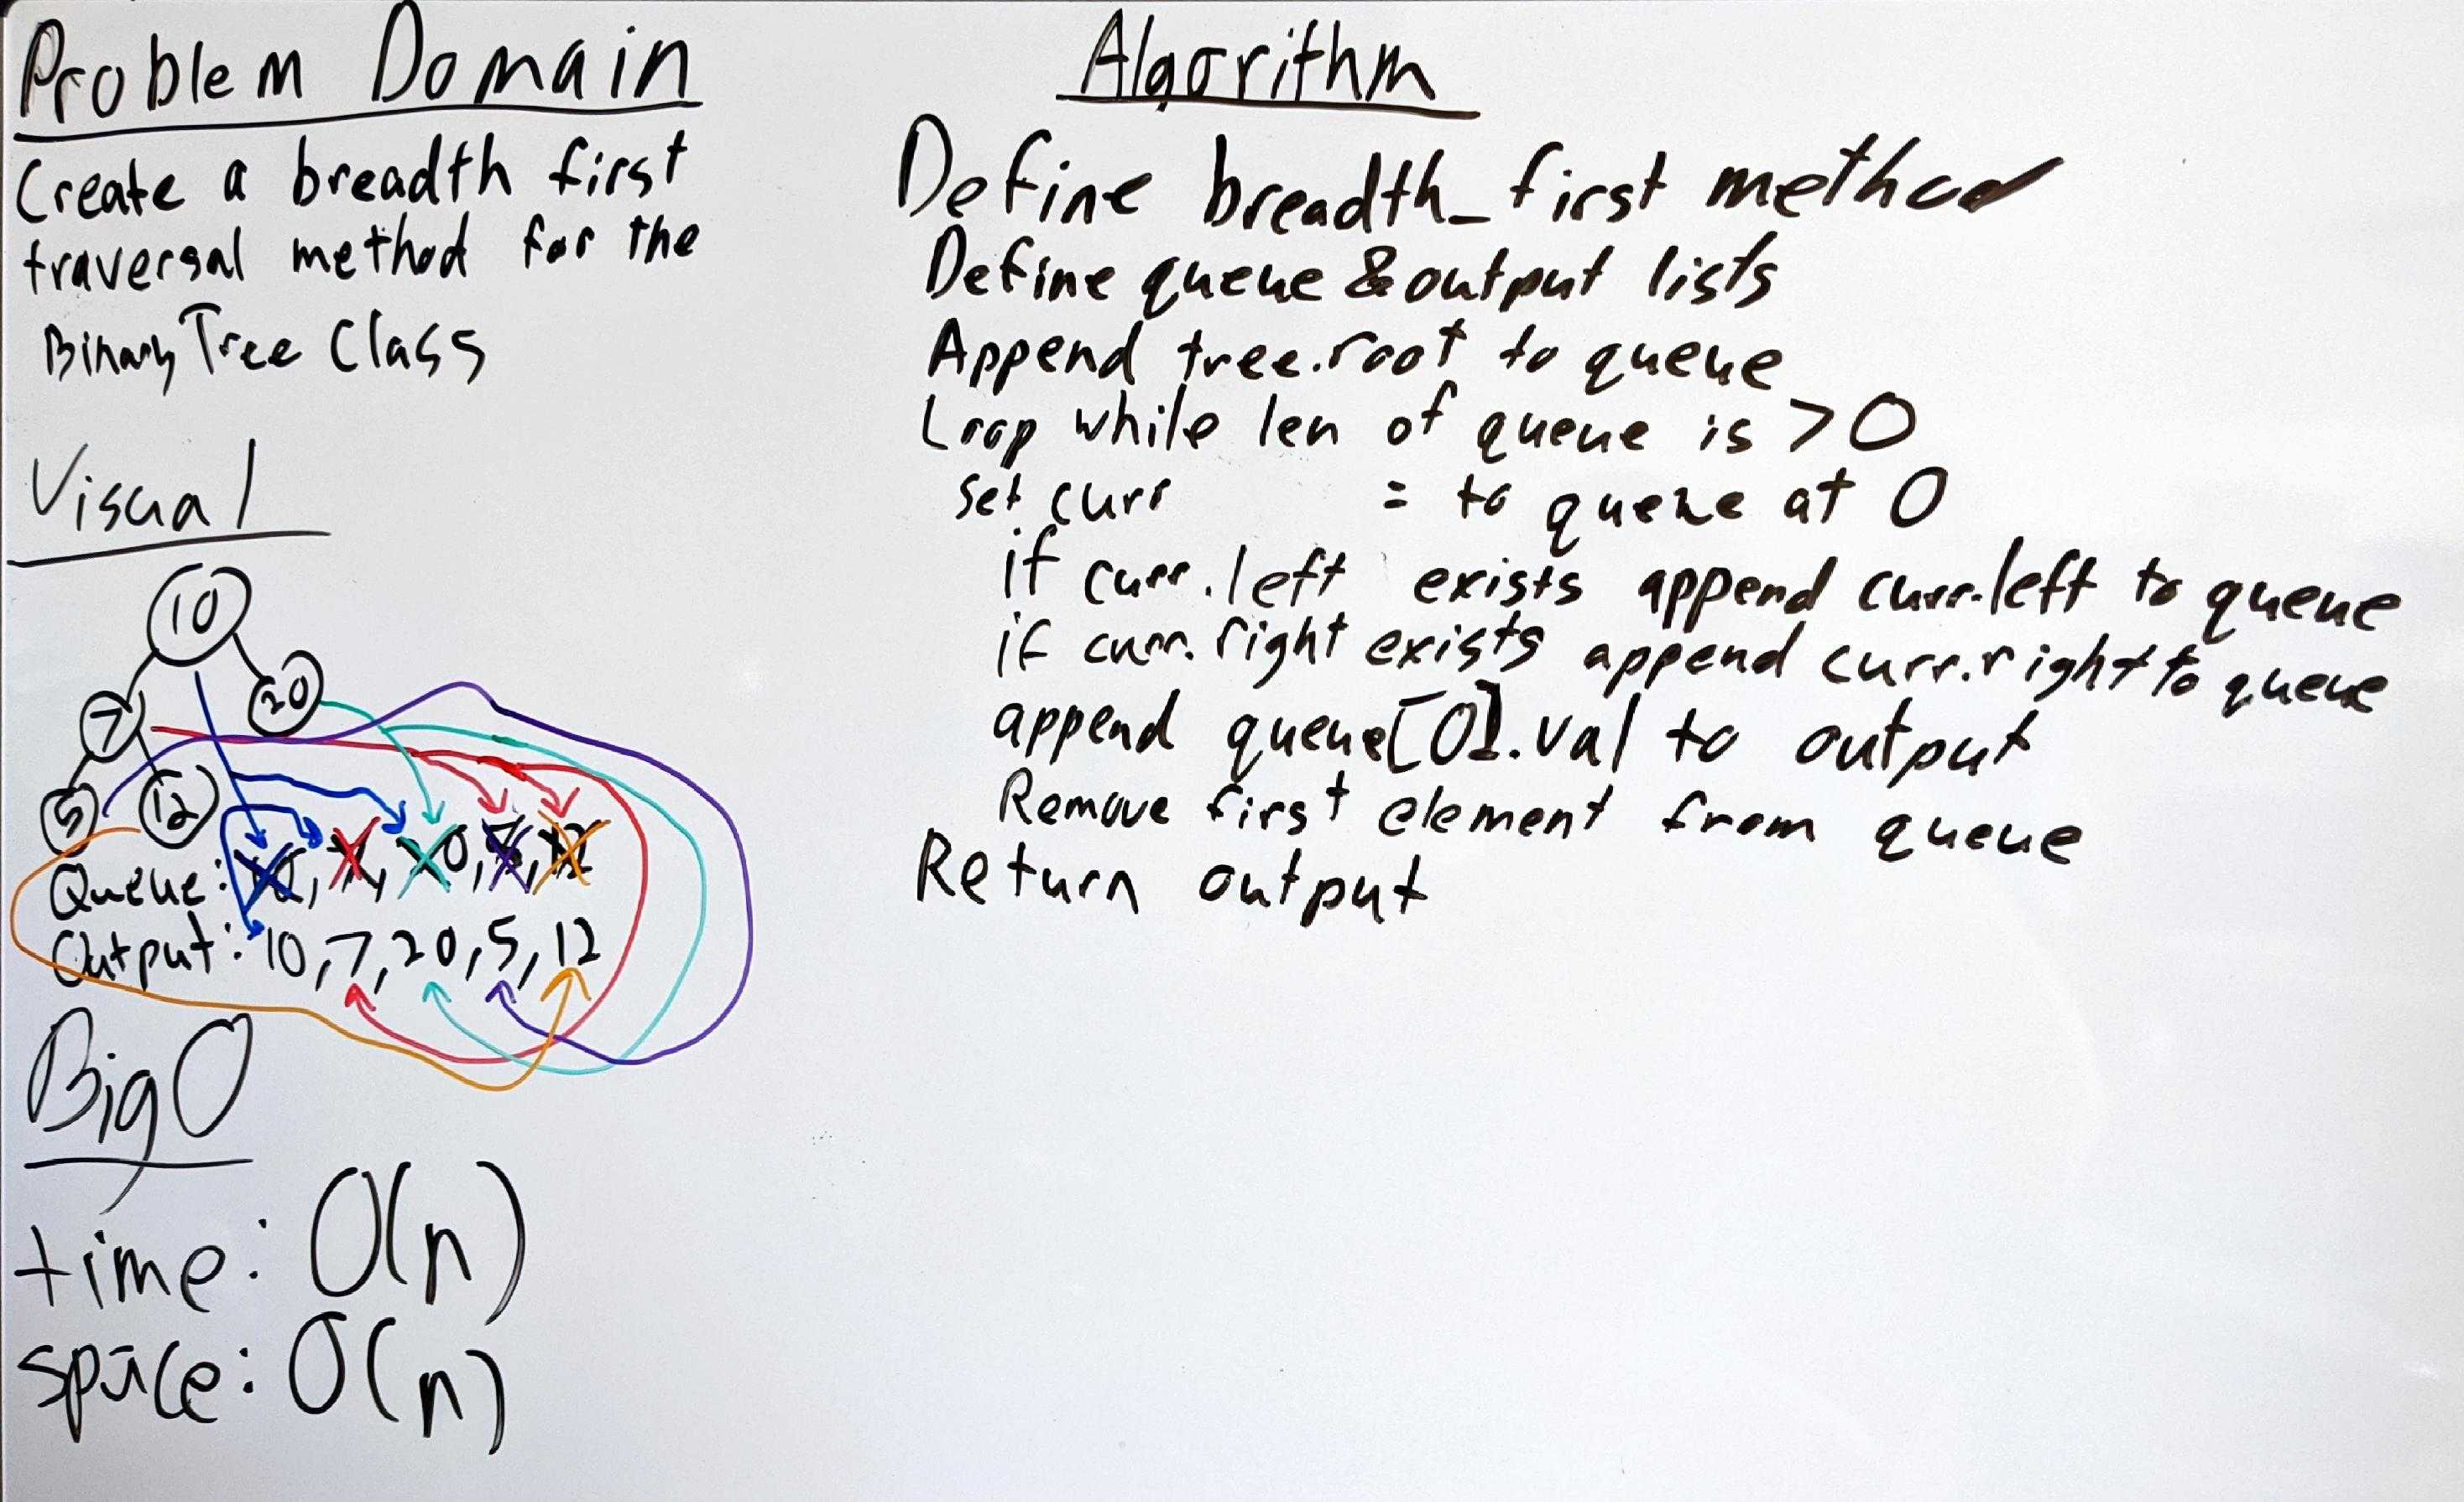 Problem Domain
Create a breadth first
traversal method for the
Binary Tree Class
Visual
10
7
20
5
12
Queue: 10, 7, 20, 5, 12
Output: 10, 7, 20, 5, 12
Big O
time: O(n)
space: O(n)
Algorithm
Define breadth_first method
Define queue & output lists
Append tree.root to queue
Loop while len of queue is > 0
Set curr = to queue at 0
if curr.left exists append curr.left to queue
if curr.right exists append curr.right to queue
append queue[0].val to output
Remove first element from queue
Return output